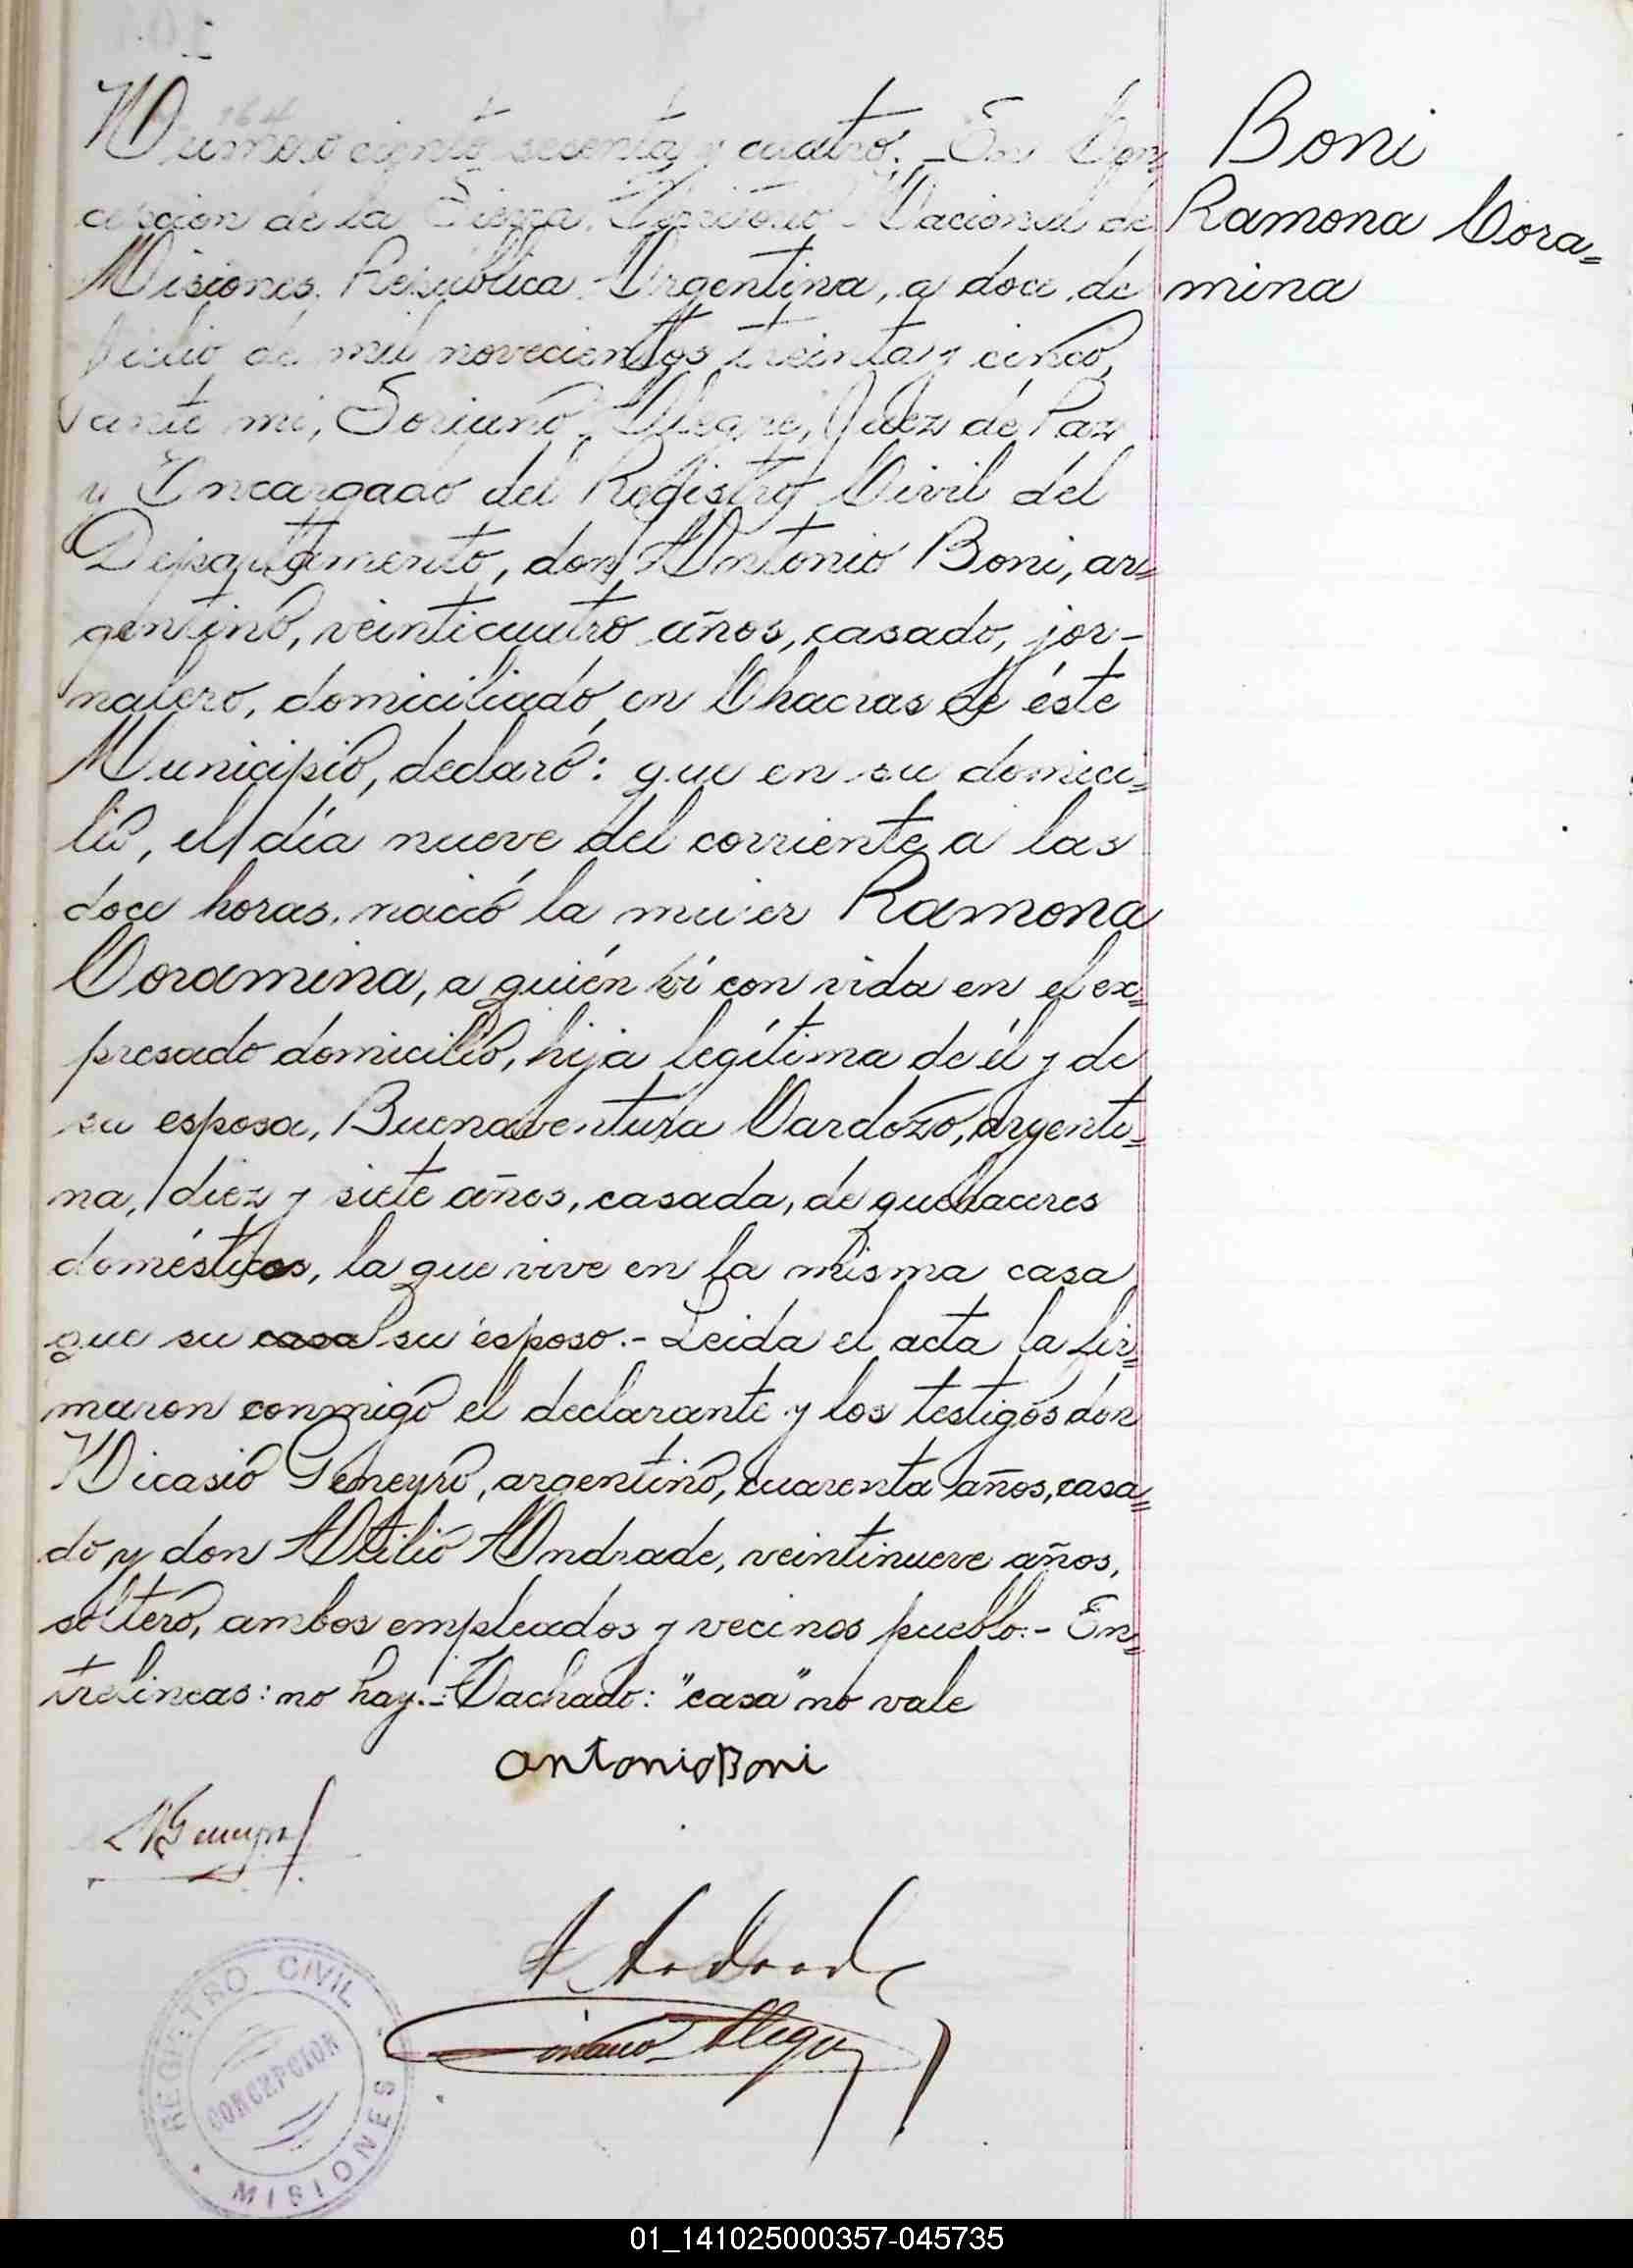 164
Número ciento sesenta y cuatro.- En Con
cepcion de la Sierra, Territorio Nacional de
Misiones, República Argentina, a doce de
Julio de mil novecientos treinta y cinco,
ante mi, Soriano Alegre, Juez de Paz
y Encargado del Registro Civil del
Departamento, don Antonio Boni, ar=
gentino, veinticuatro años, casado, jor-
nalero, domiciliado en Chacras de éste
Municipio, declaró: que en su domici=
lio, el día nueve del corriente a las
doce horas, nació la mujer Ramona
Coramina, a quién ví con vida en el ex=
presado domicilio, hija legítima de él y de
su esposa, Buenaventura Cardozo, argenti=
na, diez y siete años, casada, de quehaceres
domésticos, la que vive en la misma casa
que su casa su esposo.- Leida el acta la fir=
maron conmigo el declarante y los testigos don
Nicasio Geneyro, argentino, cuarenta años, casa=
do y don Atilio Andrade, veintinueve años,
soltero, ambos empleados y vecinos pueblo.- En=
trelineas: no hay.- Tachado: "casa" no vale
Boni
Ramona Cora=
mina
antonio Boni
N Geneyro
A Andrade
Soriano Alegre
REGISTRO CIVIL
CONCEPCION
MISIONES
01_141025000357-045735